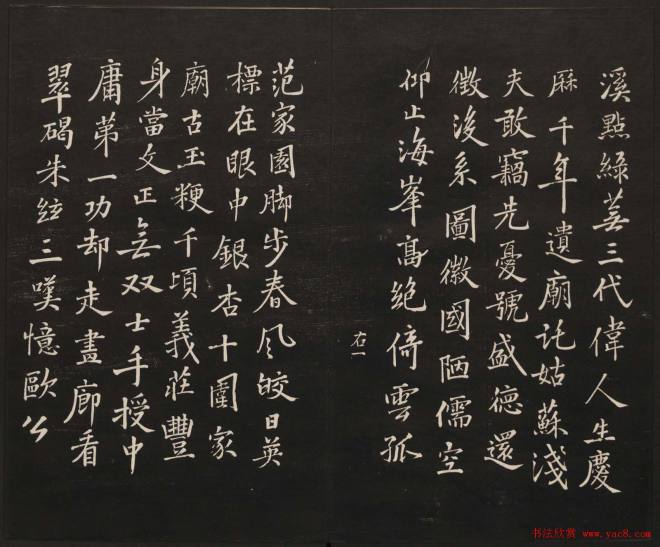 溪點綠蕪三代偉人生慶
厤千年遺廟託姑蘇淺
夫敢竊先憂號盛德還
徵後系圖徽國陋儒空
仰止海峯高絶倚雲孤
右一
范家園脚步春風皎日英
標在眼中銀杏十圍家
廟古玉粳千頃義莊豐
身當文正無双士手授中
庸第一功却走畫廊看
翠碣朱絃三嘆憶歐公
书法欣赏 www.yac8.com